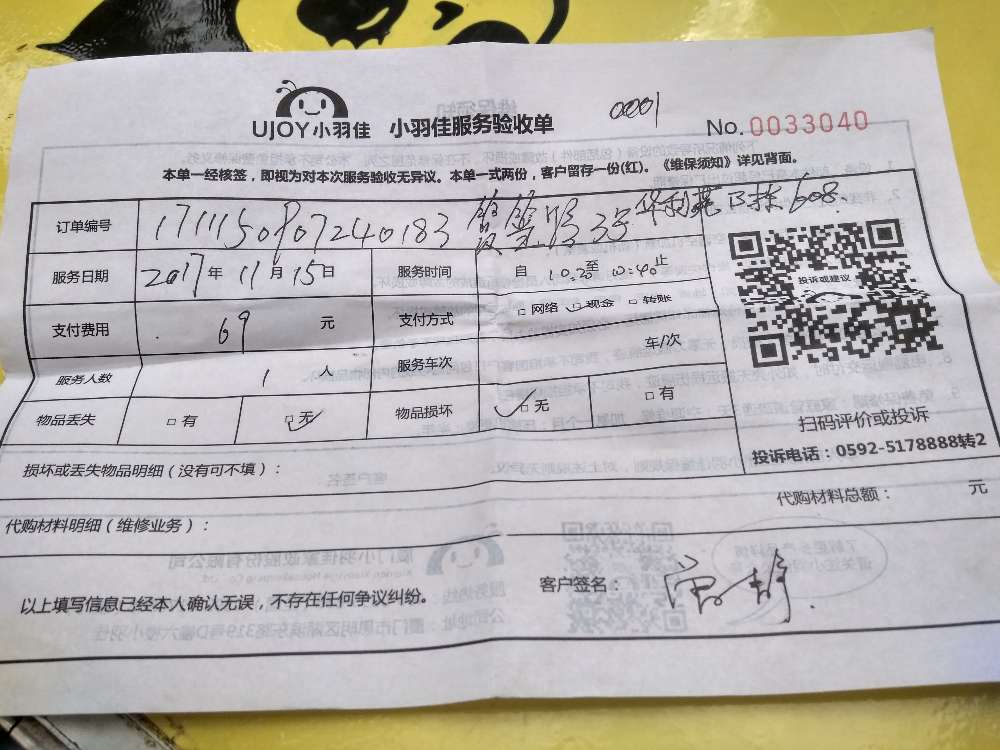 UJOY小羽佳 小羽佳服务验收单 0001 No. 0033040
本单一经核签，即视为对本次服务验收无异议。本单一式两份，客户留存一份(红)。《维保须知》详见背面。
订单编号 1711150907240183 608
服务日期 2017年11月15日 服务时间 自 10:20至 止
投诉或建议
支付费用 69 元 支付方式 □网络 □现金 □转账
服务人数 1 人 服务车次 车/次
物品丢失 □有 □无 物品损坏 □无 □有
扫码评价或投诉
投诉电话：0592-5178888转2
损坏或丢失物品明细（没有可不填）：
代购材料总额： 元
代购材料明细（维修业务）：
客户签名：
以上填写信息已经本人确认无误，不存在任何争议纠纷。